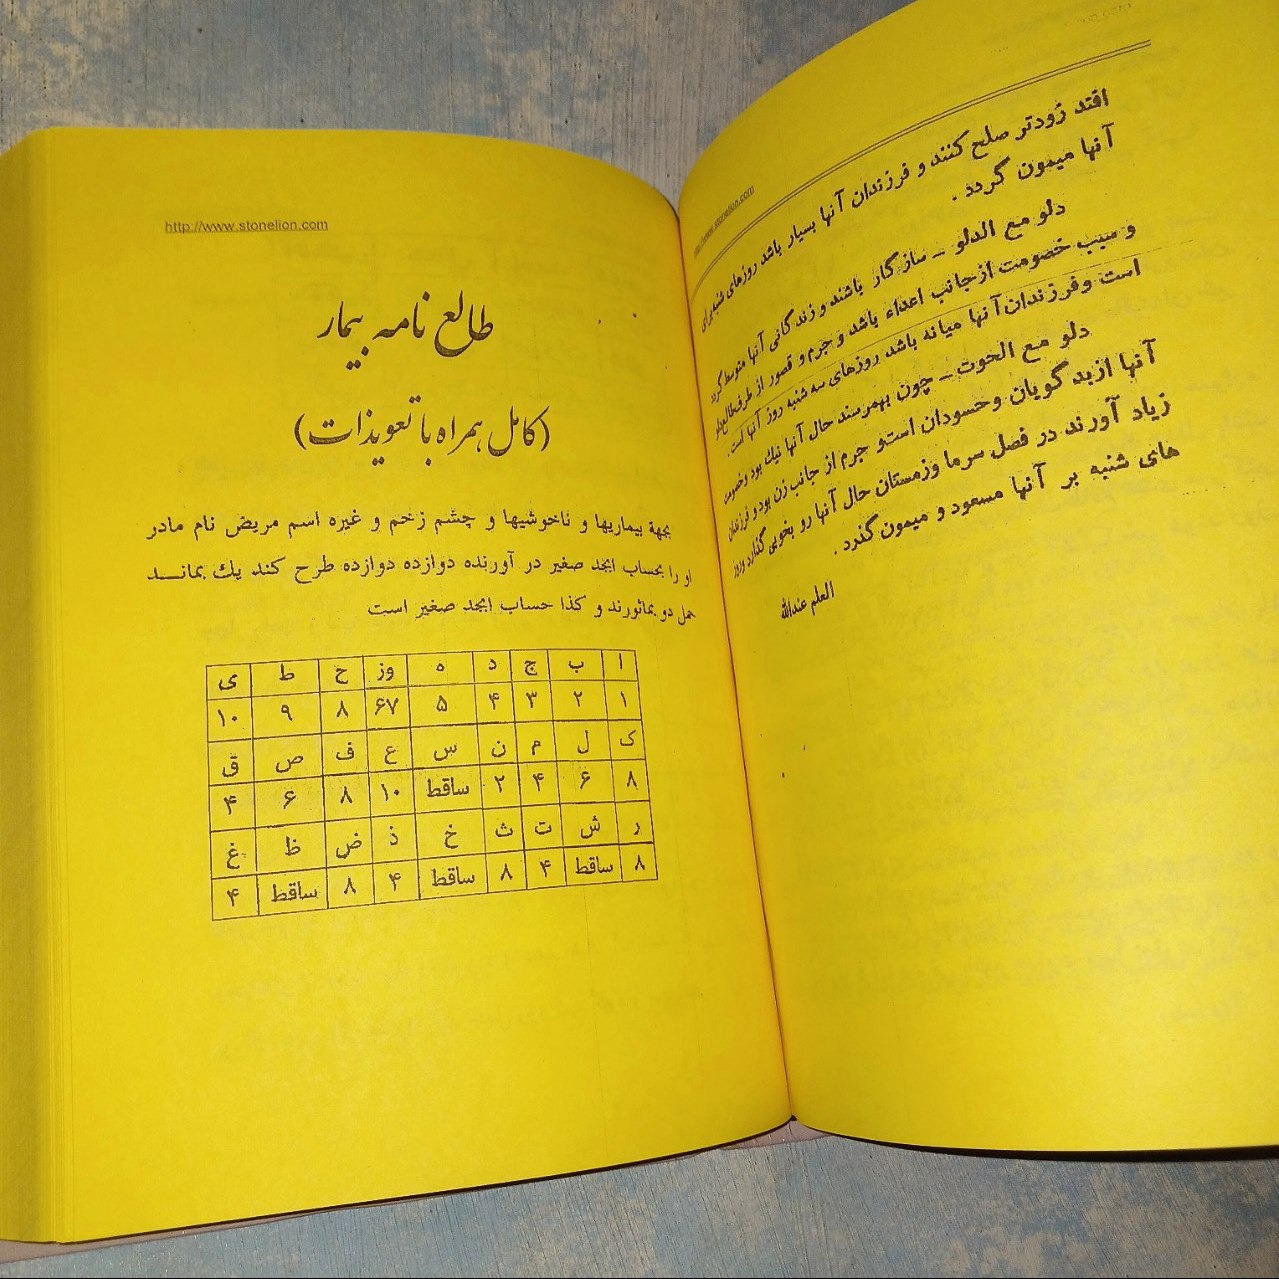 http://www.stonelion.com
افتد زودتر صلح کنند و فرزندان آنها بسیار باشد روزهای شنبه برای
آنها میمون گردد .
دلو مع الدلو ــ سازگار باشند و زندگانی آنها متوسط گردد
و سبب خصومت از جانب اعداء باشد و جرم و قصور از طرف طالع
است و فرزندان آنها میانه باشد روزهای سه شنبه روز آنها است .
دلو مع الحوت ــ چون بهمرسند حال آنها نیك بود و خصومت
آنها از بد گویان و حسودان است و جرم از جانب زن بود و فرزندان
زیاد آورند در فصل سرما وزمستان حال آنها رو بخوبی گذارد و روز
های شنبه بر آنها مسعود و میمون گذرد .
العلم عندالله
http://www.stonelion.com
طالع نامه بیمار
(کامل همراه با تعویذات)
بجهة بیماریها و ناخوشیها و چشم زخم و غیره اسم مریض نام مادر
او را بحساب ابجد صغیر در آورنده دوازده دوازده طرح کند یك بمانــد
حمل دو بماثورند و کذا حساب ابجد صغیر است
ا ب ج د ه وز ح ط ی
۱ ۲ ۳ ۴ ۵ ۶۷ ۸ ۹ ۱۰
ک ل م ن س ع ف ص ق
۸ ۶ ۴ ۲ ساقط ۱۰ ۸ ۶ ۴
ر ش ت ث خ ذ ض ظ غ
۸ ساقط ۴ ۸ ساقط ۴ ۸ ساقط ۴